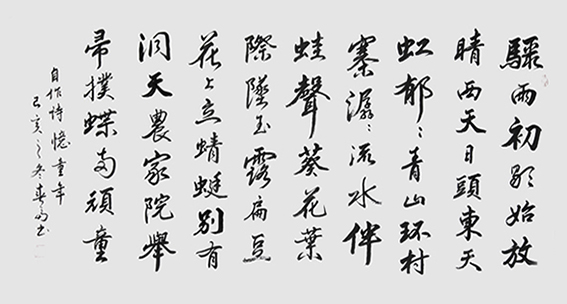 驟雨初歇始放
晴西天日頭東天
虹郁々青山环村
寨潺々流水伴
蛙聲葵花葉
際墜玉露扁豆
花上立蜻蜓别有
洞天農家院舉
帚撲蝶两頑童
自作詩憶童年
己亥之冬春书